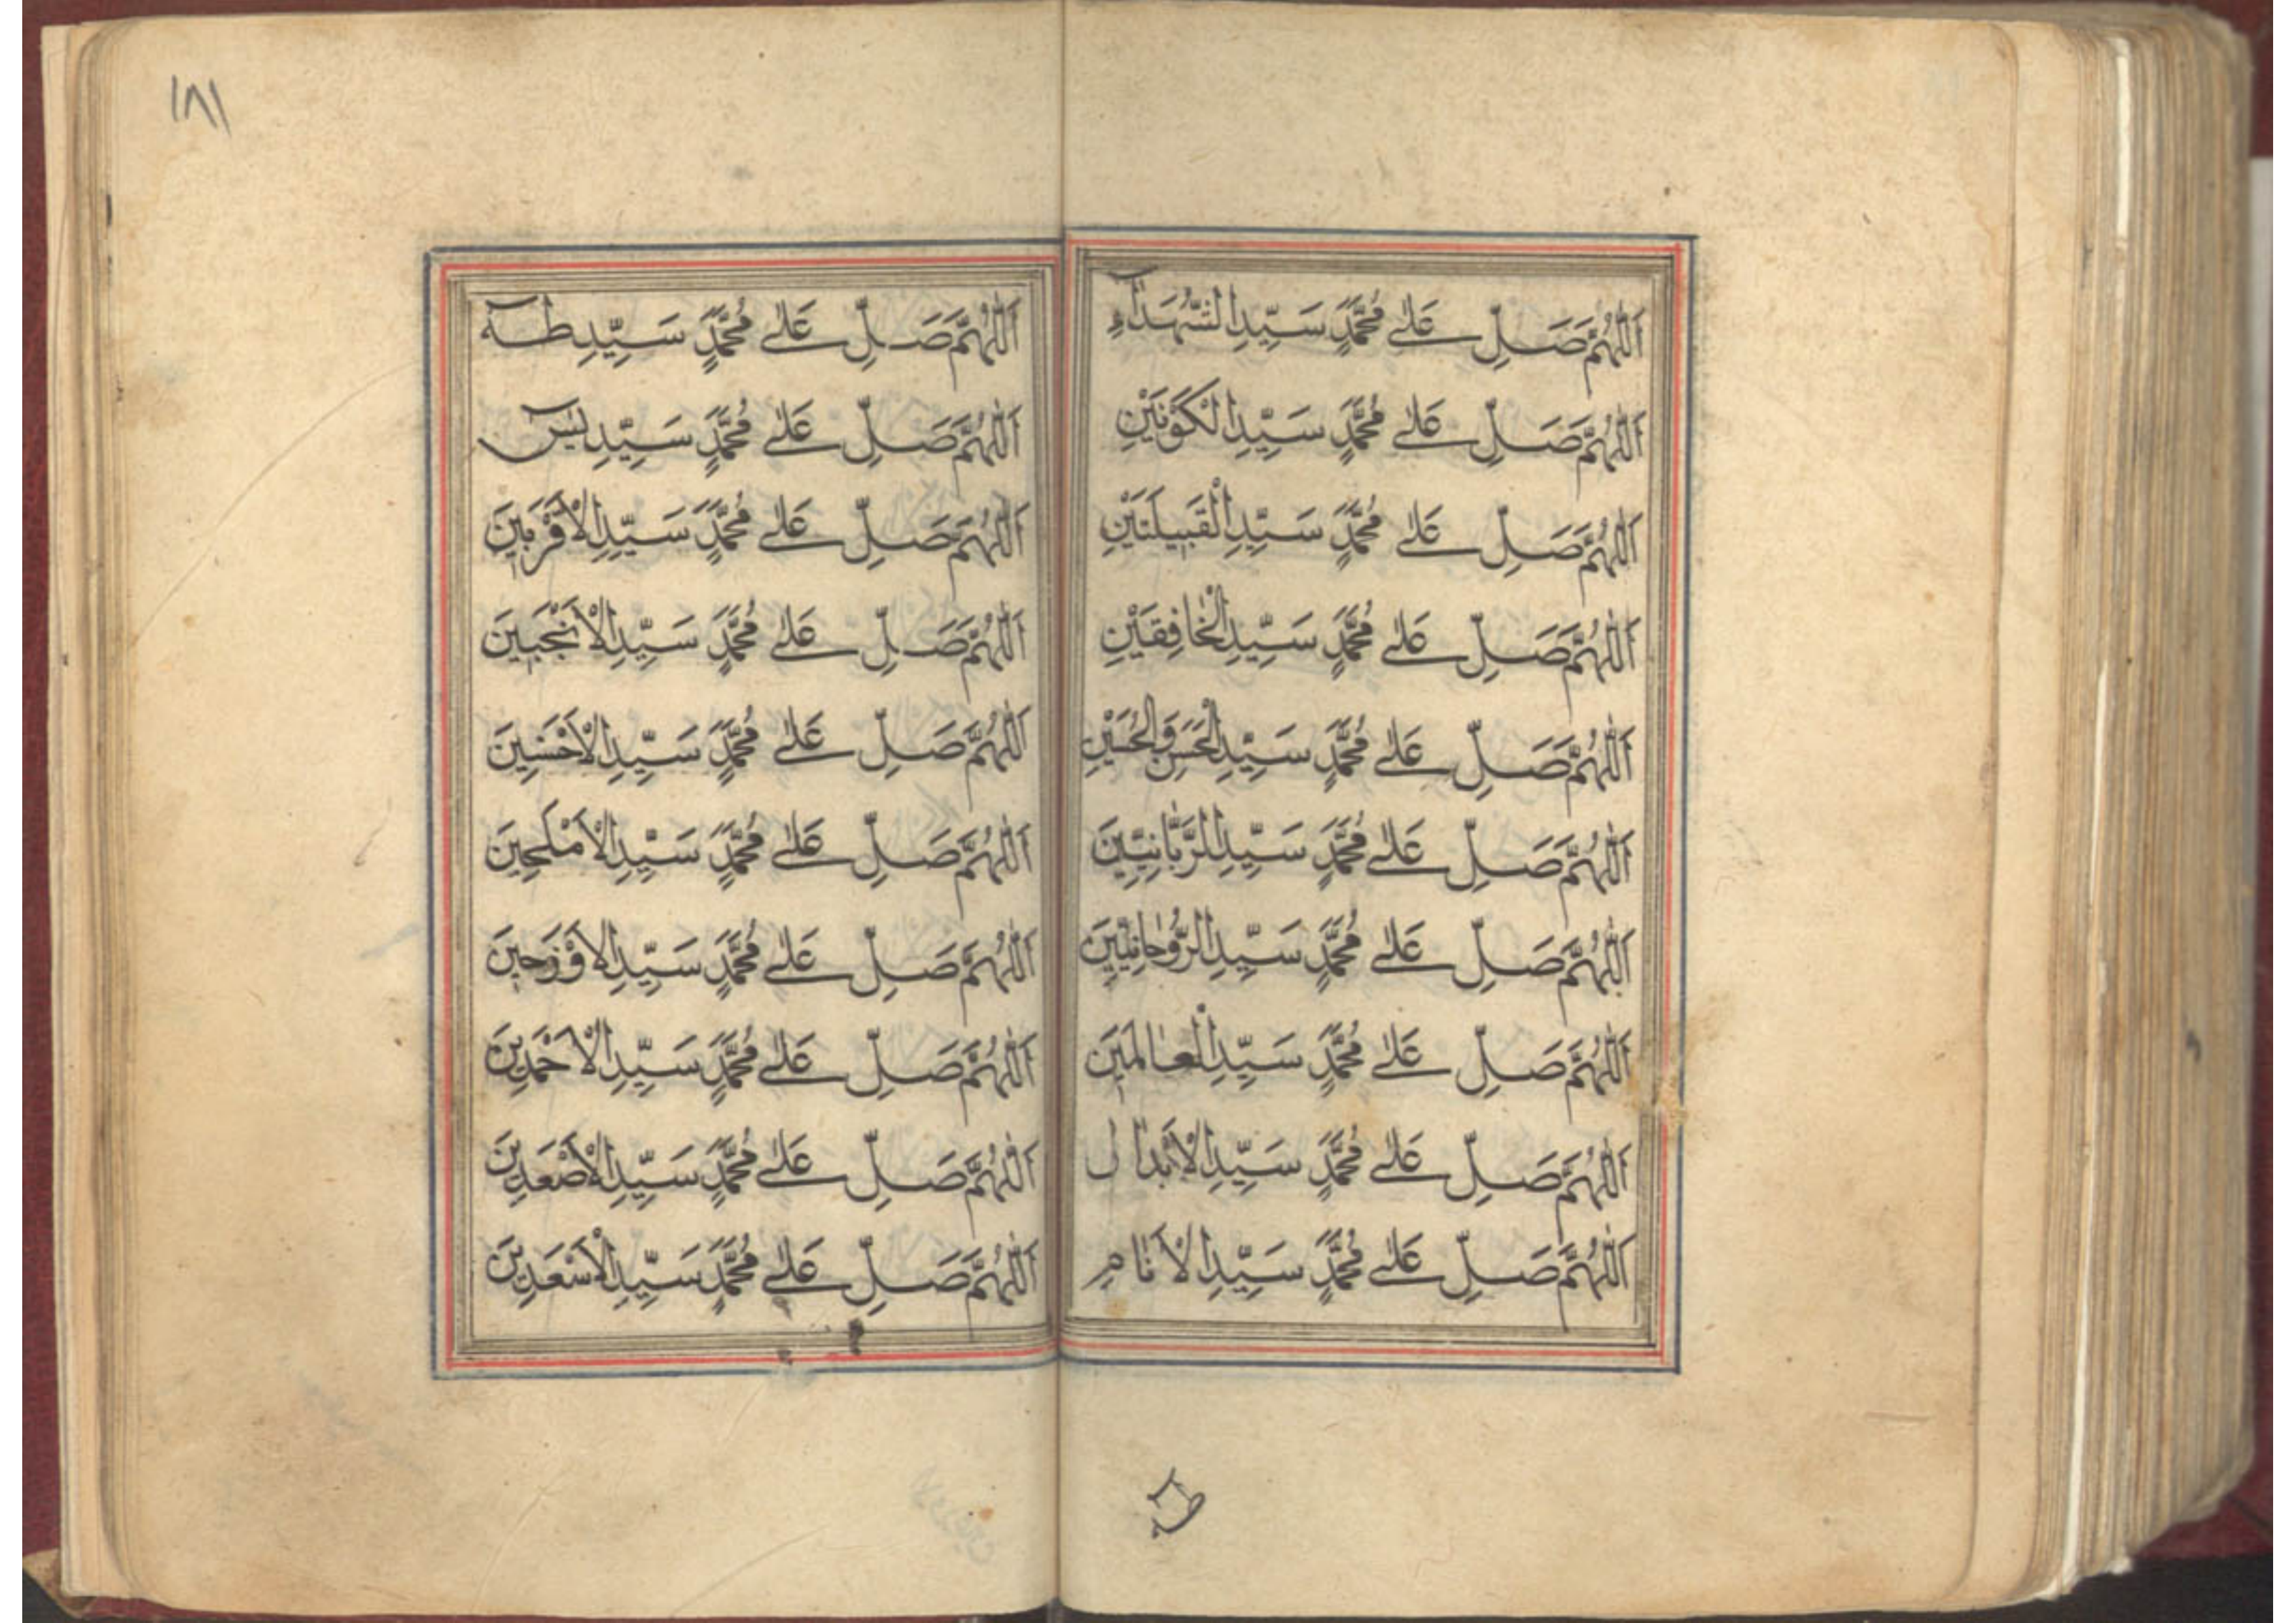 اَللّٰهُمَّ صَلِّ عَلٰى مُحَمَّدٍ سَيِّدِ الشُّهَدَآءِ
اَللّٰهُمَّ صَلِّ عَلٰى مُحَمَّدٍ سَيِّدِ الْكَوْنَيْنِ
اَللّٰهُمَّ صَلِّ عَلٰى مُحَمَّدٍ سَيِّدِ الْقَبِيلَتَيْنِ
اَللّٰهُمَّ صَلِّ عَلٰى مُحَمَّدٍ سَيِّدِ الْخَافِقَيْنِ
اَللّٰهُمَّ صَلِّ عَلٰى مُحَمَّدٍ سَيِّدِ الْحَسَنِ وَالْحُسَيْنِ
اَللّٰهُمَّ صَلِّ عَلٰى مُحَمَّدٍ سَيِّدِ الرَّبَّانِيِّينَ
اَللّٰهُمَّ صَلِّ عَلٰى مُحَمَّدٍ سَيِّدِ الرُّوحَانِيِّينَ
اَللّٰهُمَّ صَلِّ عَلٰى مُحَمَّدٍ سَيِّدِ الْعَالَمَيْنَ
اَللّٰهُمَّ صَلِّ عَلٰى مُحَمَّدٍ سَيِّدِ الْاَبْدَالِ
اَللّٰهُمَّ صَلِّ عَلٰى مُحَمَّدٍ سَيِّدِ الْاَنَامِ
١٨١
اَللّٰهُمَّ صَلِّ عَلٰى مُحَمَّدٍ سَيِّدِ طٰهٰ
اَللّٰهُمَّ صَلِّ عَلٰى مُحَمَّدٍ سَيِّدِ يٰسٓ
اَللّٰهُمَّ صَلِّ عَلٰى مُحَمَّدٍ سَيِّدِ الْاَقْرَبِينَ
اَللّٰهُمَّ صَلِّ عَلٰى مُحَمَّدٍ سَيِّدِ الْاَنْجَبِينَ
اَللّٰهُمَّ صَلِّ عَلٰى مُحَمَّدٍ سَيِّدِ الْاَحْسَنِينَ
اَللّٰهُمَّ صَلِّ عَلٰى مُحَمَّدٍ سَيِّدِ الْاَمْلَحِينَ
اَللّٰهُمَّ صَلِّ عَلٰى مُحَمَّدٍ سَيِّدِ
اَللّٰهُمَّ صَلِّ عَلٰى مُحَمَّدٍ سَيِّدِ الْاَحْمَدِينَ
اَللّٰهُمَّ صَلِّ عَلٰى مُحَمَّدٍ سَيِّدِ الْاَصْعَدِينَ
اَللّٰهُمَّ صَلِّ عَلٰى مُحَمَّدٍ سَيِّدِ الْاَسْعَدِينَ